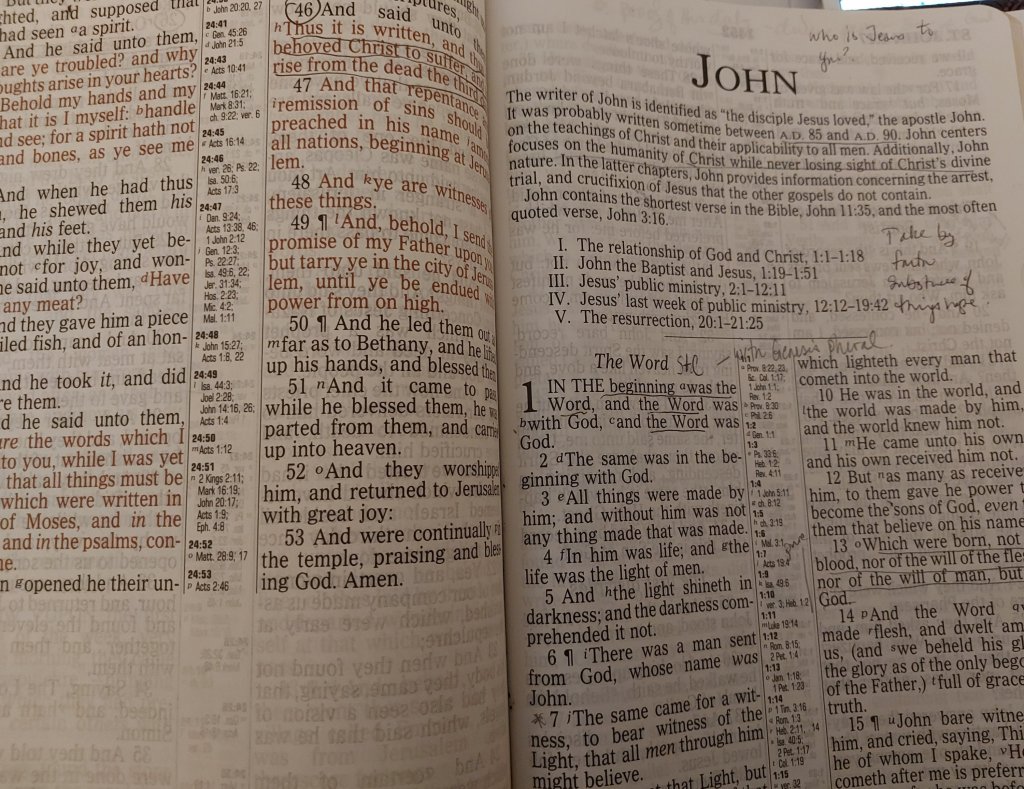 ghted, and supposed that
had seen ᵃa spirit.
And he said unto them,
are ye troubled? and why
oughts arise in your hearts?
Behold my hands and my
hat it is I myself: ᵇhandle
nd see; for a spirit hath not
and bones, as ye see me
And when he had thus
, he shewed them his
and his feet.
nd while they yet be-
not ᶜfor joy, and won-
he said unto them, ᵈHave
any meat?
nd they gave him a piece
iled fish, and of an hon-
nd he took it, and did
re them.
d he said unto them,
are the words which I
to you, while I was yet
that all things must be
which were written in
of Moses, and in the
and in the psalms, con-
me.
n ᵍopened he their un-
b John 20:20, 27
24:41
c Gen. 45:26
d John 21:5
24:43
e Acts 10:41
24:44
f Matt. 16:21;
Mark 8:31;
ch. 9:22; ver. 6
24:45
g Acts 16:14
24:46
h ver. 26; Ps. 22;
Isa. 50:6;
Acts 17:3
24:47
i Dan. 9:24;
Acts 13:38, 46;
1 John 2:12
j Gen. 12:3;
Ps. 22:27;
Isa. 49:6, 22;
Jer. 31:34;
Hos. 2:23;
Mic. 4:2;
Mal. 1:11
24:48
k John 15:27;
Acts 1:8, 22
24:49
l Isa. 44:3;
Joel 2:28;
John 14:16, 26;
Acts 1:4
24:50
m Acts 1:12
24:51
n 2 Kings 2:11;
Mark 16:19;
John 20:17;
Acts 1:9;
Eph. 4:8
24:52
o Matt. 28:9, 17
24:53
p Acts 2:46
46 And said unto
ʰThus it is written, and
behoved Christ to suffer, and
rise from the dead the third
47 And that repentance
ⁱremission of sins should
preached in his name ʲamo
all nations, beginning at Jeru
lem.
48 And ᵏye are witnesses
these things.
49 ¶ ˡAnd, behold, I send
promise of my Father upon
but tarry ye in the city of Jeru
lem, until ye be endued
power from on high.
50 ¶ And he led them out
ᵐfar as to Bethany, and he lift
up his hands, and blessed them
51 ⁿAnd it came to pass
while he blessed them, he wa
parted from them, and carrie
up into heaven.
52 ᵒAnd they worshippe
him, and returned to Jerusalem
with great joy:
53 And were continually
the temple, praising and bless
ing God. Amen.
who is Jesus to
you?
JOHN
The writer of John is identified as "the disciple Jesus loved," the apostle John.
It was probably written sometime between A.D. 85 and A.D. 90. John centers
on the teachings of Christ and their applicability to all men. Additionally, John
focuses on the humanity of Christ while never losing sight of Christ's divine
nature. In the latter chapters, John provides information concerning the arrest,
trial, and crucifixion of Jesus that the other gospels do not contain.
John contains the shortest verse in the Bible, John 11:35, and the most often
quoted verse, John 3:16.
Take by
faith
substance of
things hope
I. The relationship of God and Christ, 1:1–1:18
II. John the Baptist and Jesus, 1:19–1:51
III. Jesus' public ministry, 2:1–12:11
IV. Jesus' last week of public ministry, 12:12–19:42
V. The resurrection, 20:1–21:25
The Word
with Genesis
1 IN THE beginning ᵃwas the
Word, and the Word was
ᵇwith God, ᶜand the Word was
God.
2 ᵈThe same was in the be-
ginning with God.
3 ᵉAll things were made by
him; and without him was not
any thing that was made.
4 ᶠIn him was life; and ᵍthe
life was the light of men.
5 And ʰthe light shineth in
darkness; and the darkness com-
prehended it not.
6 ¶ ⁱThere was a man sent
from God, whose name was
John.
7 ʲThe same came for a wit-
ness, to bear witness of the
Light, that all men through him
might believe.
that Light, but
a Prov. 8:22, 23,
&c. Col. 1:17;
1 John 1:1;
Rev. 1:2
b Prov. 8:30
c Phil. 2:6
1:2
d Gen. 1:1
1:3
e Ps. 33:6;
Heb. 1:2;
Rev. 4:11
1:4
f 1 John 5:11
g ch. 8:12
1:5
h ch. 3:19
1:6
i Mal. 3:1
1:7
j Acts 19:4
1:9
k Isa. 49:6
1:10
l ver. 3; Heb. 1:2
1:11
m Luke 19:14
1:12
n Rom. 8:15;
2 Pet. 1:4
1:13
o Jam. 1:18;
1 Pet. 1:23
1:14
p 1 Tim. 3:16
q Rom. 1:3
r Heb. 2:11, 14
s Isa. 40:5;
2 Pet. 1:17
t Col. 1:19
1:15
u ver. 32
which lighteth every man that
cometh into the world.
10 He was in the world, and
ˡthe world was made by him,
and the world knew him not.
11 ᵐHe came unto his own
and his own received him not.
12 But ⁿas many as receive
him, to them gave he power t
become the sons of God, even
them that believe on his name
13 ᵒWhich were born, not
blood, nor of the will of the fles
nor of the will of man, but
God.
14 ᵖAnd the Word
made ʳflesh, and dwelt am
us, (and ˢwe beheld his gl
the glory as of the only bego
of the Father,) ᵗfull of grace
truth.
15 ¶ ᵘJohn bare witne
him, and cried, saying, Thi
he of whom I spake, ᵛHe
cometh after me is preferr